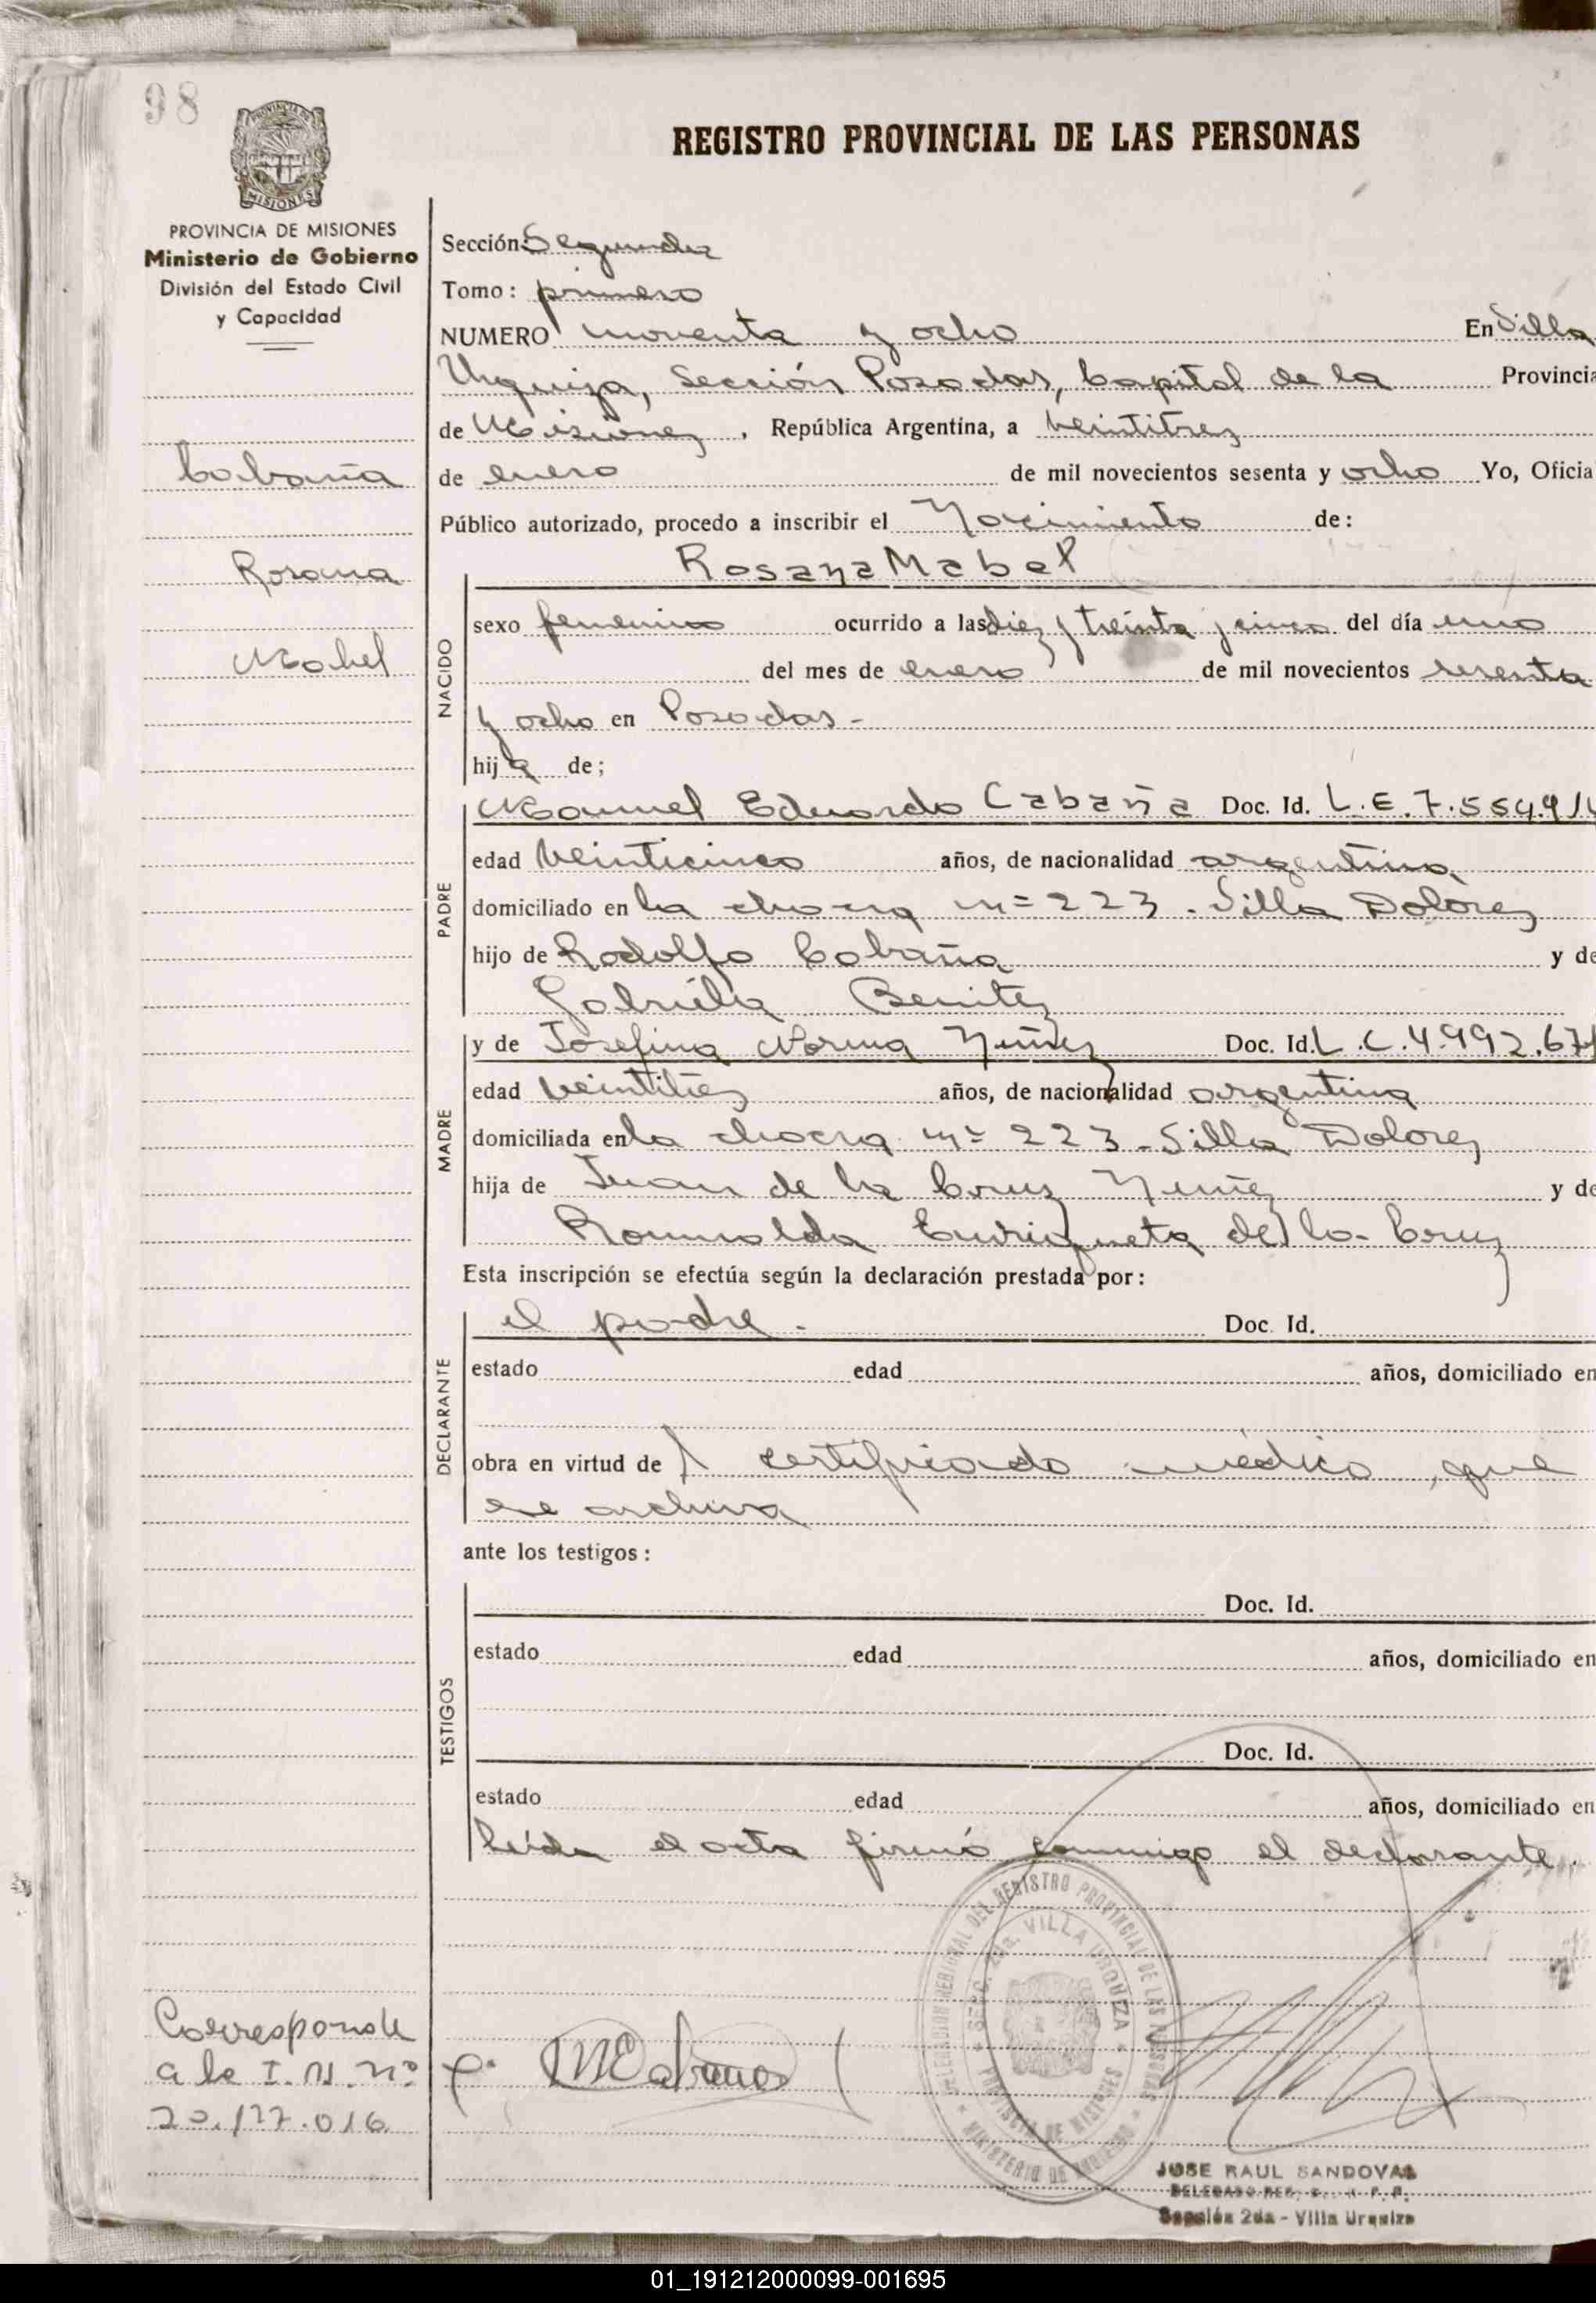 98
PROVINCIA DE
MISIONES
PROVINCIA DE MISIONES
Ministerio de Gobierno
División del Estado Civil
y Capacidad
Cabaña
Rosana
Mabel
Corresponde
a la I. N. nº
20.127.016
REGISTRO PROVINCIAL DE LAS PERSONAS
Sección: Segunda
Tomo: primero
NUMERO noventa y ocho En Villa
Urquiza, Sección Posadas, Capital de la Provincia
de Misiones, República Argentina, a veintitres
de enero de mil novecientos sesenta y ocho Yo, Oficial
Público autorizado, procedo a inscribir el Nacimiento de:
Rosana Mabel
NACIDO
sexo femenino ocurrido a las diez y treinta y cinco del día uno
del mes de enero de mil novecientos sesenta
y ocho en Posadas-
hija de;
PADRE
Manuel Eduardo Cabaña Doc. Id. L.E. 7.554.91
edad veinticinco años, de nacionalidad argentina
domiciliado en la chacra nº 223. Villa Dolores
hijo de Rodolfo Cabaña y de
Gabriela Benitez
MADRE
y de Josefina Norma Nuñez Doc. Id. L.C. 4.992.67
edad veintitres años, de nacionalidad argentina
domiciliada en la chacra nº 223 - Villa Dolores
hija de Juan de la Cruz Nuñez y de
Romualda Enriqueta de la Cruz
Esta inscripción se efectúa según la declaración prestada por:
DECLARANTE
el padre. Doc. Id.
estado edad años, domiciliado en
obra en virtud del certificado médico, que
se archiva
ante los testigos:
TESTIGOS
Doc. Id.
estado edad años, domiciliado en
Doc. Id.
estado edad años, domiciliado en
Leída el acta firmó conmigo el declarante.
DELEGACION REGIONAL DEL REGISTRO PROVINCIAL DE LAS PERSONAS
SECC. 2da. VILLA URQUIZA
PROVINCIA DE MISIONES
MINISTERIO DE GOBIERNO
JOSE RAUL SANDOVAL
Sección 2da - Villa Urquiza
01_191212000099-001695